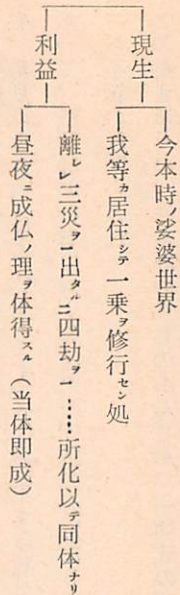 現生
今本時ノ娑婆世界
我等ガ居住シテ一乗ヲ修行セン処
利益
離レ三災ヲ一出タルニ四劫ヲ一……所化以テ同体ナリ
昼夜ニ成仏ノ理ヲ体得スル（当体即成）